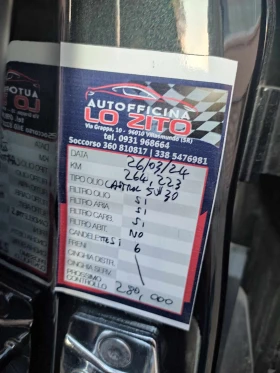 AUTOFFICINA
LO ZITO
Via Grappa, 10 - 96010 Villasmundo (SR)
tel. 0931 968664
Soccorso 360 810817 | 338 5476981
DATA 26/03/24
KM 264,223
TIPO OLIO CASTROL 5W30
FILTRO OLIO SI
FILTRO ARIA SI
FILTRO CARB. SI
FILTRO ABIT. NO
CANDELETTE SI 6
FRENI
CINGHIA DISTR.
CINGHIA SERV.
PROSSIMO
CONTROLLO 280,000